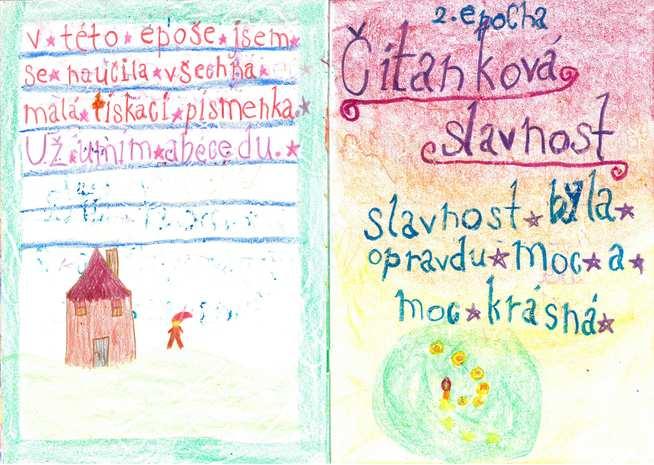 v této epoše jsem
se naučila všechna
malá tiskací písmenka.
Už umím abecedu.
2. epocha
Čítanková
slavnost
slavnost byla
opravdu moc a
moc krásná